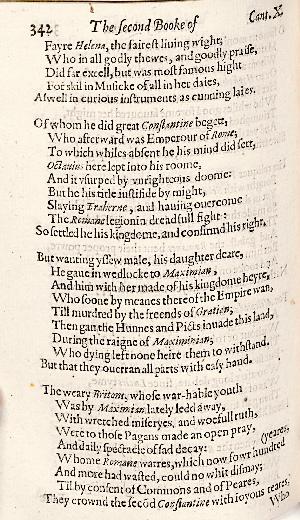 342
The second Booke of
Cant. X.
Fayre Helena, the fairest liuing wight;
Who in all godly thewes, and goodly praise,
Did far excell, but was most famous hight
For skil in Musicke of all in her daies,
Aswell in curious instruments as cunning laies.
Of whom he did great Constantine begett,
Who afterward was Emperour of Rome;
To which whiles absent he his mind did sett,
Octauius here lept into his roome,
And it vsurped by vnrighteous doome:
But he his title iustifide by might,
Slaying Traherne, and hauing ouercome
The Romane legion in dreadfull fight:
So settled he his kingdome, and confirmd his right.
But wanting yssew male, his daughter deare,
He gaue in wedlocke to Maximian,
And him with her made of his kingdome heyre,
Who soone by meanes thereof the Empire wan,
Till murdred by the freends of Gratian;
Then gan the Hunnes and Picts inuade this land,
During the raigne of Maximinian;
Who dying left none heire them to withstand.
But that they ouerran all parts with easy hand.
The weary Britons, whose war-hable youth
Was by Maximian lately ledd away,
With wretched miseryes, and woefull ruth,
Were to those Pagans made an open pray,
And daily spectacle of sad decay:
Whome Romane warres, which now fowr hundred
(yeares,
And more had wasted, could no whit dismay;
Til by consent of Commons and of Peares,
They crownd the secõd Constantine with ioyous teares,
Who